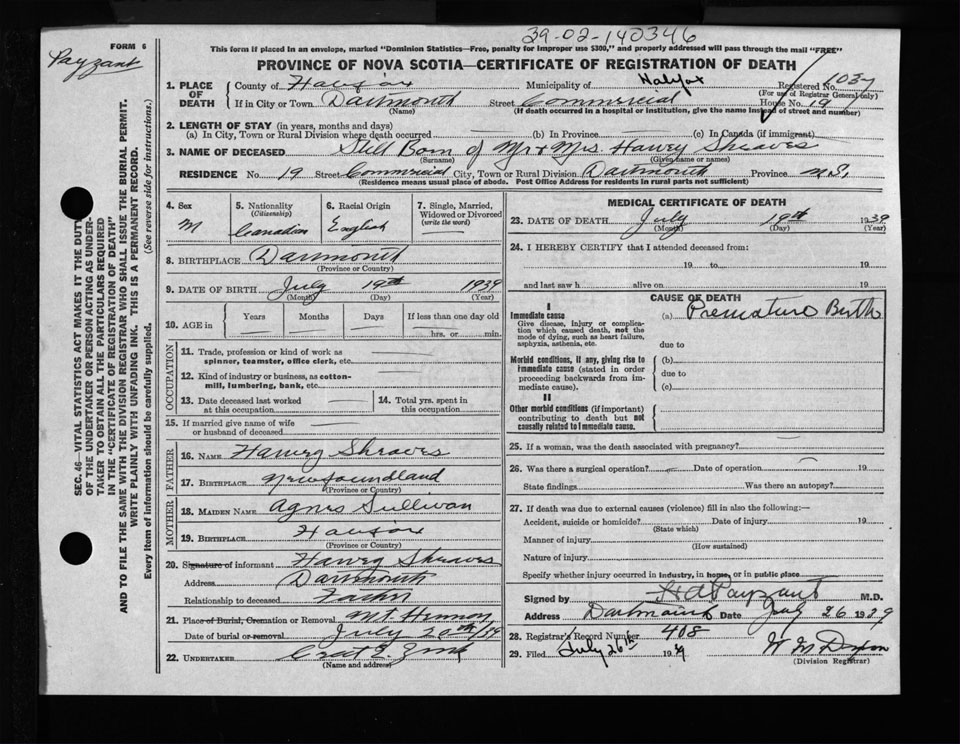 39-02-140346
Payzant
FORM 6
This form if placed in an envelope, marked "Dominion Statistics—Free, penalty for improper use $300," and properly addressed will pass through the mail "FREE"
PROVINCE OF NOVA SCOTIA—CERTIFICATE OF REGISTRATION OF DEATH
SEC. 46—VITAL STATISTICS ACT MAKES IT THE DUTY
OF THE UNDERTAKER OR PERSON ACTING AS UNDER-
TAKER TO OBTAIN ALL THE PARTICULARS REQUIRED
IN THE "CERTIFICATE OF REGISTRATION OF DEATH"
AND TO FILE THE SAME WITH THE DIVISION REGISTRAR WHO SHALL ISSUE THE BURIAL PERMIT.
WRITE PLAINLY WITH UNFADING INK. THIS IS A PERMANENT RECORD.
Every item of Information should be carefully supplied. (See reverse side for instructions.)
1. PLACE OF DEATH County of Halifax Municipality of Halifax Registered No. 1037
(For use of Registrar General only)
If in City or Town Dartmouth Street Commercial House No. 19
(Name) (If death occurred in a hospital or institution, give the name instead of street and number)
2. LENGTH OF STAY (in years, months and days)
(a) In City, Town or Rural Division where death occurred (b) In Province (c) In Canada (if immigrant)
3. NAME OF DECEASED Still Born of Mr & Mrs. Harvey Sheaves
(Surname) (Given name or names)
RESIDENCE No. 19 Street Commercial City, Town or Rural Division Dartmouth Province N.S.
(Residence means usual place of abode. Post Office Address for residents in rural parts not sufficient)
4. Sex M
5. Nationality (Citizenship) Canadian
6. Racial Origin English
7. Single, Married, Widowed or Divorced (write the word)
8. BIRTHPLACE Dartmouth
(Province or Country)
9. DATE OF BIRTH July 19th 1939
(Month) (Day) (Year)
10. AGE in Years Months Days If less than one day old
hrs. or min.
OCCUPATION
11. Trade, profession or kind of work as
spinner, teamster, office clerk, etc.
12. Kind of industry or business, as cotton-
mill, lumbering, bank, etc.
13. Date deceased last worked
at this occupation
14. Total yrs. spent in
this occupation
15. If married give name of wife
or husband of deceased
FATHER
16. NAME Harvey Sheaves
17. BIRTHPLACE Newfoundland
(Province or Country)
MOTHER
18. MAIDEN NAME Agnes Sullivan
19. BIRTHPLACE Halifax
(Province or Country)
20. Signature of informant Harvey Sheaves
Address Dartmouth
Relationship to deceased Father
21. Place of Burial, Cremation or Removal Mt Hermon
Date of burial or removal July 20th/39
22. UNDERTAKER
(Name and address)
MEDICAL CERTIFICATE OF DEATH
23. DATE OF DEATH July 19th 1939
(Month) (Day) (Year)
24. I HEREBY CERTIFY that I attended deceased from:
19 to 19
and last saw h alive on 19
CAUSE OF DEATH
I
Immediate cause
Give disease, injury or complica-
tion which caused death, not the
mode of dying, such as heart failure,
asphyxia, asthenia, etc.
(a) Premature Birth
due to
Morbid conditions, if any, giving rise to
immediate cause (stated in order
proceeding backwards from im-
mediate cause).
(b)
due to
(c)
II
Other morbid conditions (if important)
contributing to death but not
causally related to immediate cause.
25. If a woman, was the death associated with pregnancy?
26. Was there a surgical operation? Date of operation 19
State findings Was there an autopsy?
27. If death was due to external causes (violence) fill in also the following:—
Accident, suicide or homicide? Date of injury 19
(State which)
Manner of injury
(How sustained)
Nature of injury
Specify whether injury occurred in industry, in home, or in public place
Signed by H A Payzant M.D.
Address Dartmouth Date July 26 1939
28. Registrar's Record Number 408
29. Filed July 26th 19
(Division Registrar)